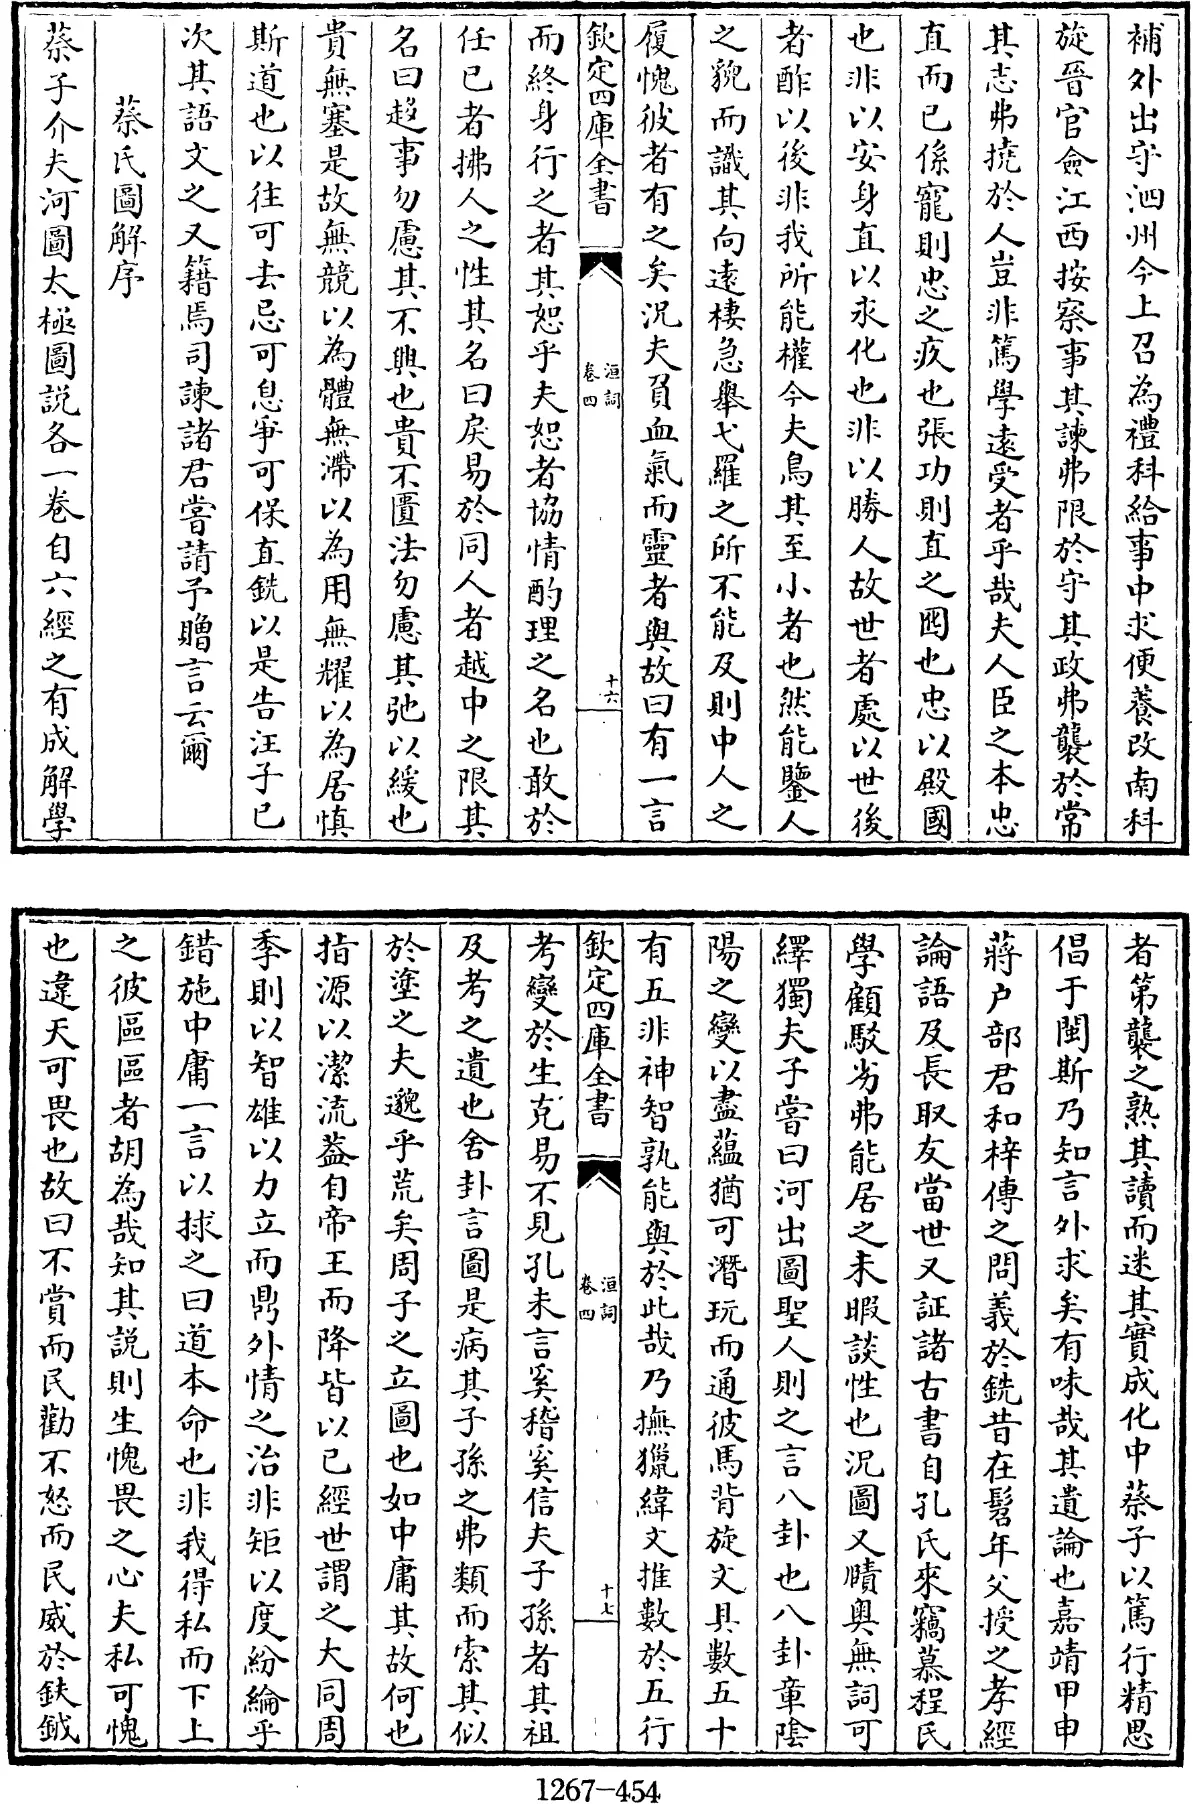 補外出守泗州今上召為禮科給事中求便養改南科
旋晉官僉江西按察事其諫弗限於守其政弗襲於常
其志弗撓於人豈非篤學遠受者乎哉夫人臣之本忠
直而已係寵則忠之疚也張功則直之囮也忠以殿國
也非以安身直以永化也非以勝人故世者處以世後
者酢以後非我所能權今夫鳥其至小者也然能鑒人
之貌而識其向遠棲急舉弋羅之所不能及則中人之
履愧彼者有之矣況夫負血氣而靈者與故曰有一言
欽定四庫全書
洹詞
卷四
十六
而終身行之者其恕乎夫恕者協情酌理之名也敢於
任已者拂人之性其名曰戾易於同人者越中之限其
名曰趍事勿慮其不興也貴不匱法勿慮其弛以緩也
貴無塞是故無競以為體無滯以為用無耀以為居慎
斯道也以往可去忌可息爭可保直銑以是告汪子已
次其語文之又籍焉司諫諸君嘗請予贈言云爾
蔡氏圖解序
蔡子介夫河圖太極圖説各一卷自六經之有成解學
者第襲之熟其讀而迷其實成化中蔡子以篤行精思
倡于閩斯乃知言外求矣有味哉其遺論也嘉靖甲申
蔣户部君和梓傳之問義於銑昔在髫年父授之孝經
論語及長取友當世又証諸古書自孔氏來竊慕程氏
學顧駁劣弗能居之未暇談性也況圖又賾奥無詞可
繹獨夫子嘗曰河出圖聖人則之言八卦也八卦章陰
陽之變以盡蘊猶可潛玩而通彼馬背旋文具數五十
有五非神智孰能與於此哉乃撫獵緯文推數於五行
欽定四庫全書
洹詞
卷四
十七
考變於生克易不見孔未言奚稽奚信夫子孫者其祖
及考之遺也舍卦言圖是病其子孫之弗類而索其似
於塗之夫邈乎荒矣周子之立圖也如中庸其故何也
指源以潔流葢自帝王而降皆以已經世謂之大同周
季則以智雄以力立而鼎外情之治非矩以度紛綸乎
錯施中庸一言以捄之曰道本命也非我得私而下上
之彼區區者胡為哉知其説則生愧畏之心夫私可愧
也違天可畏也故曰不賞而民勸不怒而民威於鈇鉞
1267-454